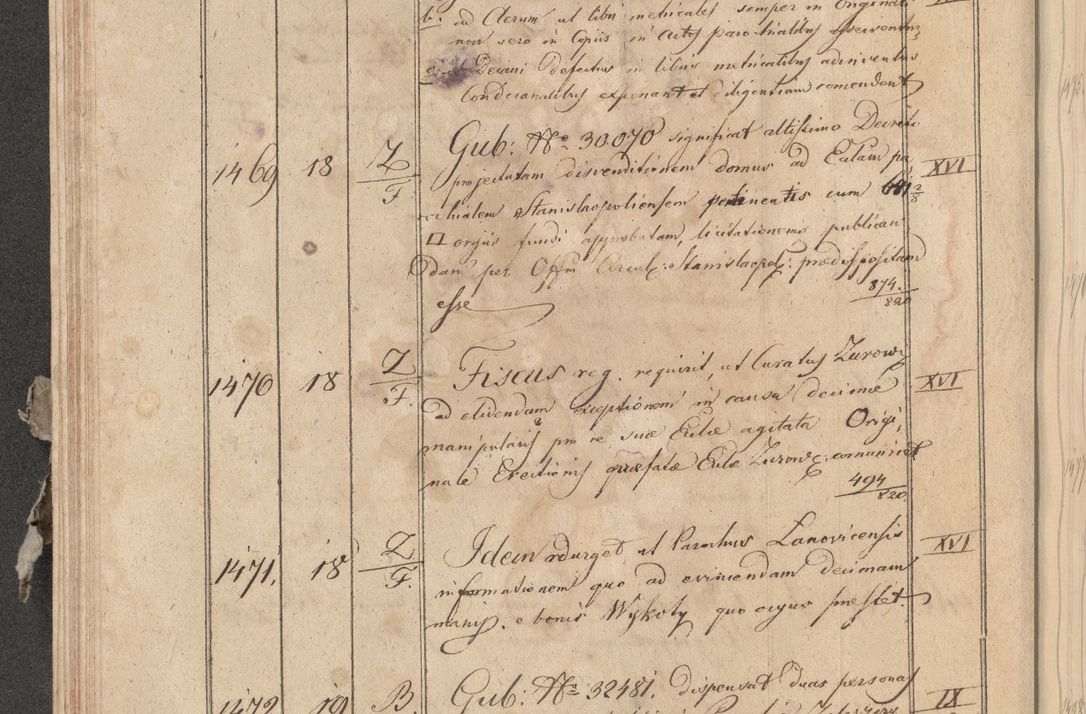 b. ad Aerum ut libri metricales semper in Originali
non vero in Copiis in Actis parochialibus asserventur,
Decani defectus in libris metricalibus adinventos
Condecanalibus exponant et diligentiam comendent
1469 18 Z/F. Gub: No 30070 significat altissimo Decreto XVI
projectatam disvenditionem domus ad Eccliam pa
rochialem Stanislapoliensem pertinentis cum 681 2/8
□ orgiis fundi approbatam, licitationemq publican
dam per Offm Circul: Stanislaopol: prædispositam
esse
874./820
1470 18 Z/F. Fiscus reg. requirit, ut Curatus Zurow: XVI
ad elidendam exceptionem in causa decimæ
manipularis pro re suæ Ecclæ agitata Origi,
nale Erectionis præfatæ Ecclæ Zurowę: comunicet
494/820
1471. 18 Z/F. Idem adurget ut Parochus Lanovicensis XVI
informationem quo ad evincendam decimam
manip. e bonis Wykoty quo ocyus præstet.
1472 19 B. Gub: No 32481. dispensat duas personas IX